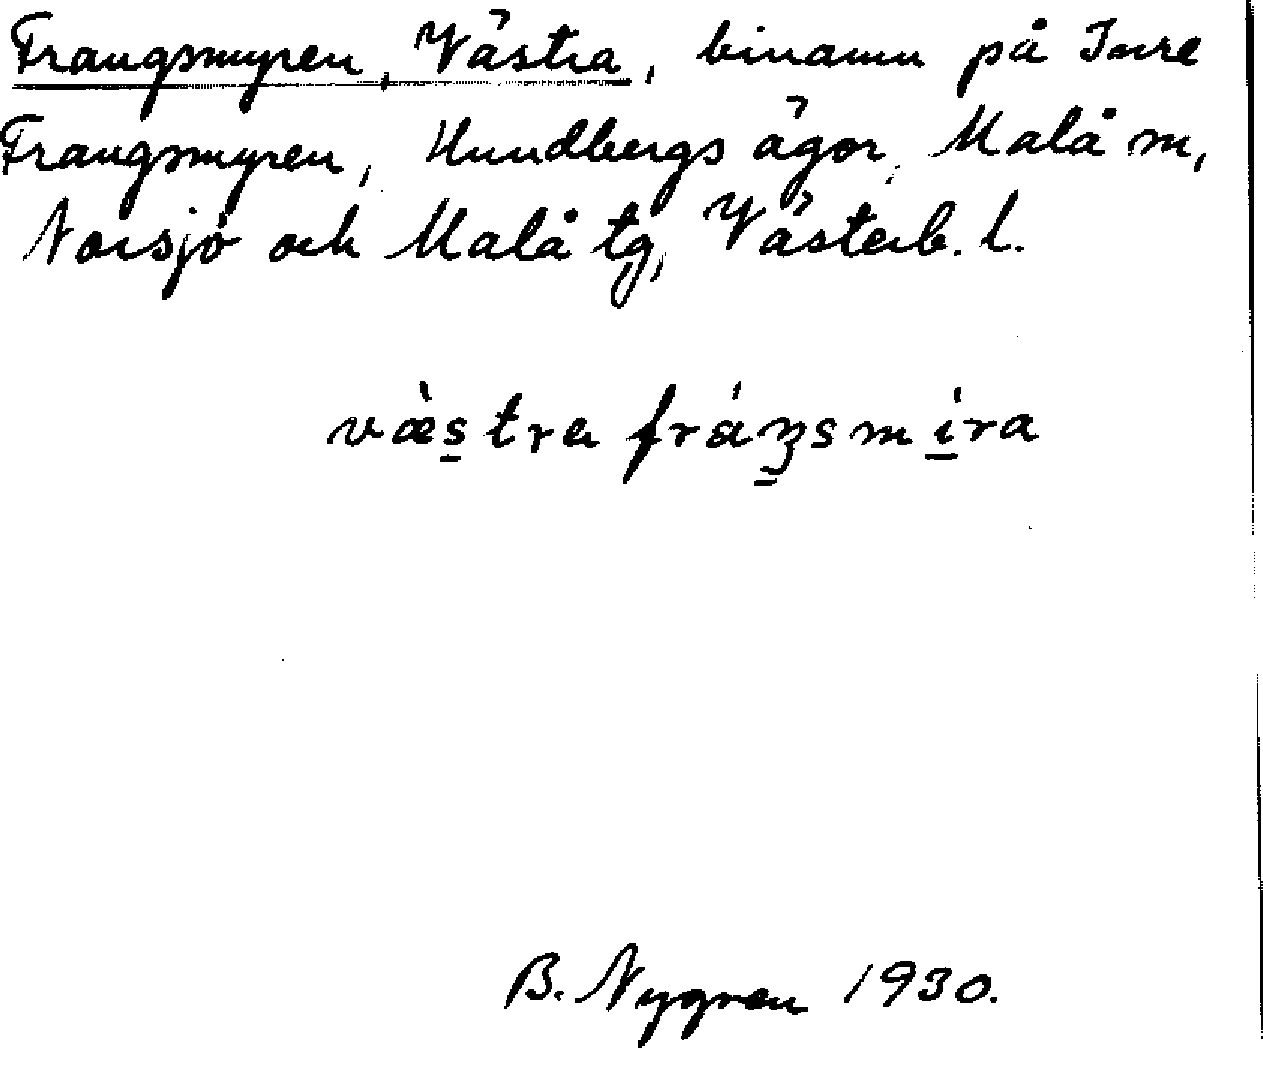 Frangsmyren, Västra, binamn på Inre
Frangsmyren, Hundbergs ägor, Malå sn,
Norsjö och Malå tg, Västerb. l.
væ̀s̱tra fráŋ̱smí̱ra
B. Nygren 1930.